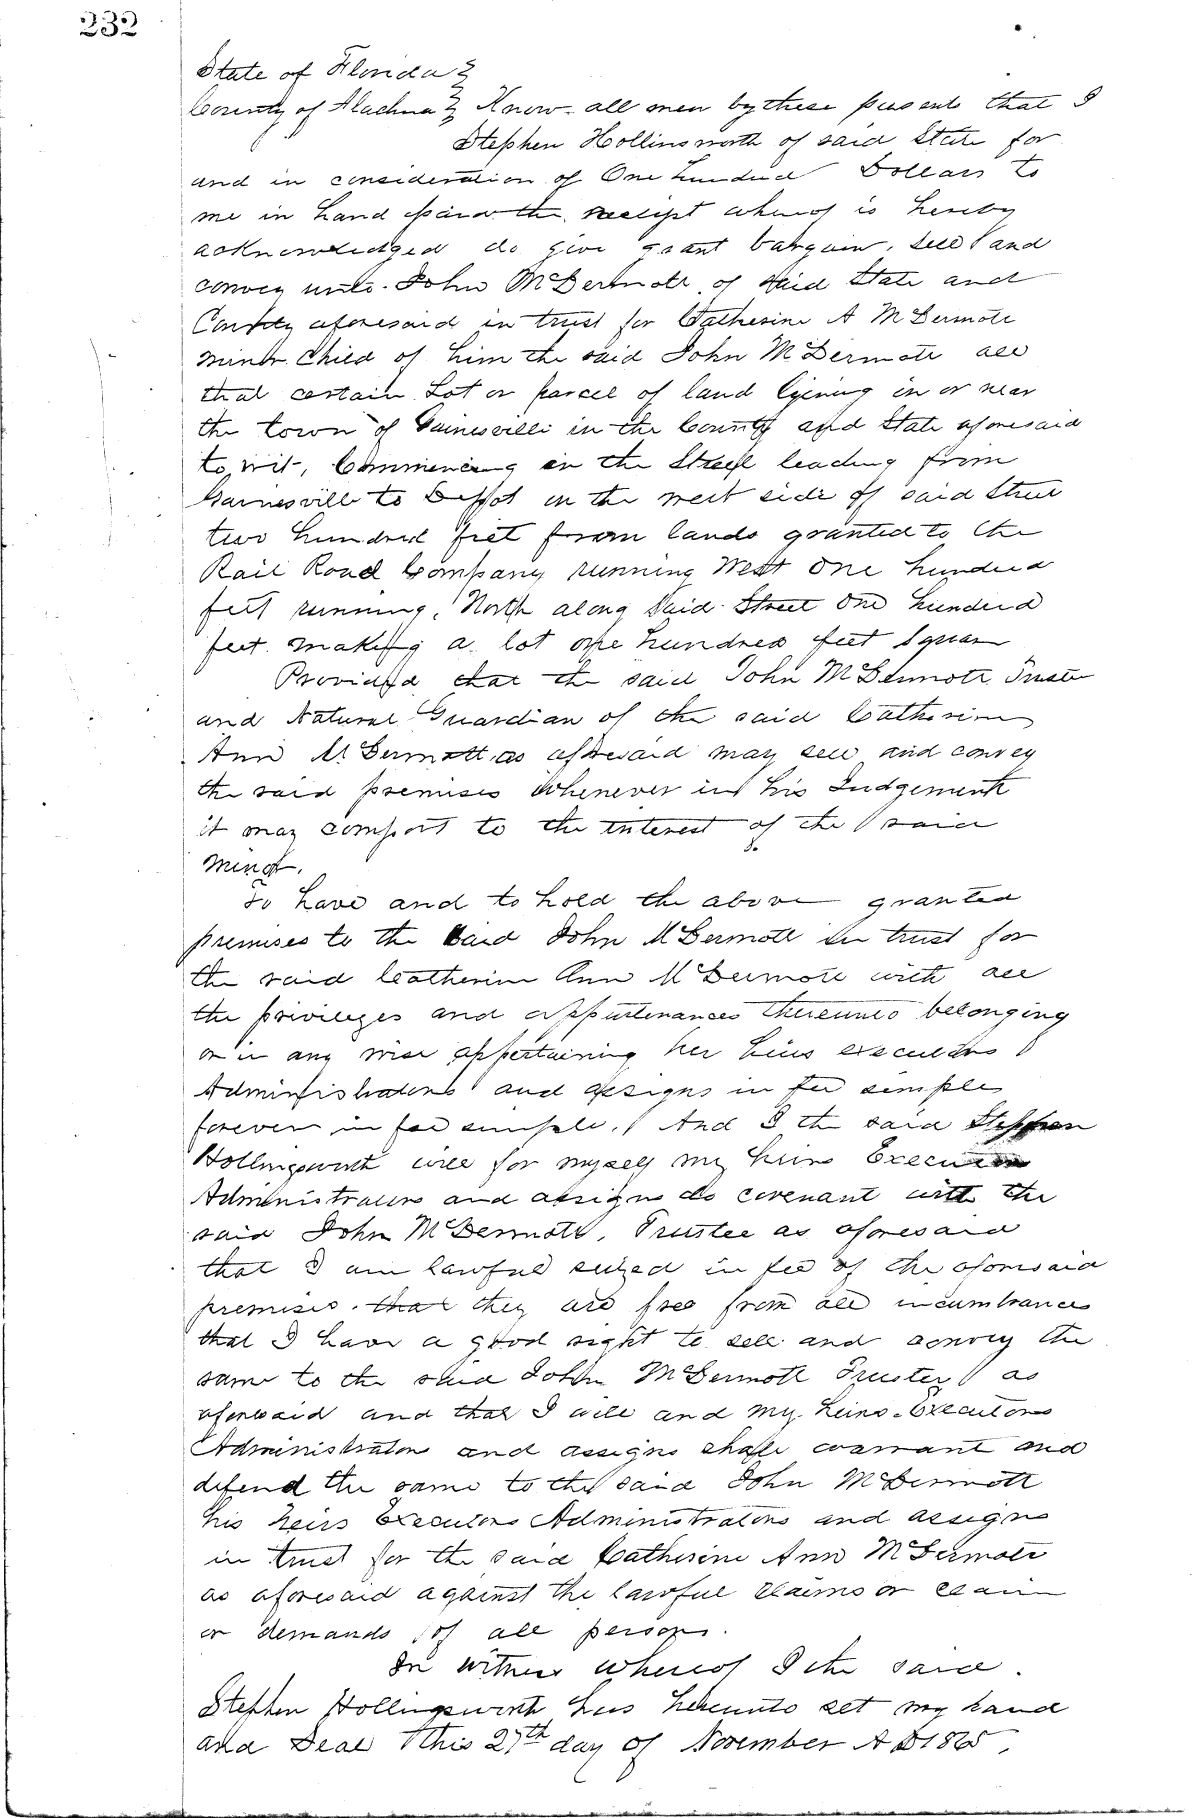 232
State of Florida }
County of Alachua } Know all men by these presents that I
Stephen Hollinsworth of said State for
and in consideration of One hundred Dollars to
me in hand paid the receipt whereof is hereby
acknowledged do give grant bargain, sell and
convey unto John McDermott of said State and
County aforesaid in trust for Catherine A McDermott
minor Child of him the said John McDermott all
that certain Lot or parcel of land lyeing in or near
the town of Gainesville in the County and State aforesaid
to wit, Commencing on the Street leading from
Gainesville to Depot on the west side of said Street
two hundred feet from lands granted to the
Rail Road Company running West One hundred
feet running North along said Street One hundred
feet making a lot one hundred feet Square
Provided that the said John McDermott Trustee
and Natural Guardian of the said Catherine
Ann McDermott as aforesaid may sell and convey
the said premises whenever in his Judgement
it may comport to the interest of the said
minor.
To have and to hold the above granted
premises to the said John McDermott in trust for
the said Catherine Ann McDermott with all
the privileges and appurtenances thereunto belonging
or in any wise appertaining her heirs executors
Administrators and assigns in fee simple
forever in fee simple. And I the said Stephen
Hollingsworth will for myself my heirs Executors
Administrators and assigns do covenant with the
said John McDermott, Trustee as aforesaid
that I am lawful seized in fee of the aforesaid
premises. that they are free from all incumbrances
that I have a good right to sell and convey the
same to the said John McDermott Trustee as
aforesaid and that I will and my heirs Executors
Administrators and assigns shall warrant and
defend the same to the said John McDermott
his heirs Executors Administrators and assigns
in trust for the said Catherine Ann McDermott
as aforesaid against the lawful claims or claim
or demands of all persons.
In witness whereof I the said
Stephen Hollingsworth has hereunto set my hand
and Seal this 27th day of November A D 1865.